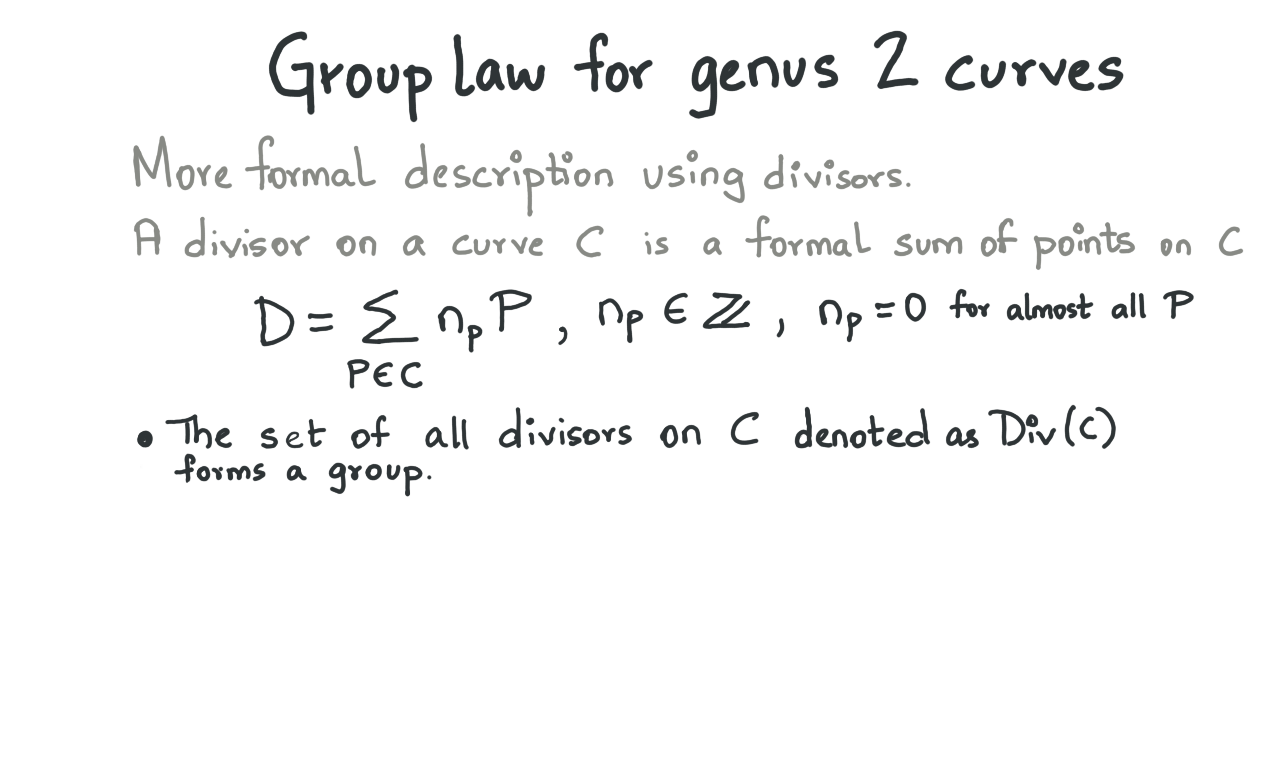 Group law for genus 2 curves
More formal description using divisors.
A divisor on a curve C is a formal sum of points on C
D = ∑ n_p P , n_p ∈ ℤ , n_p = 0 for almost all P
P∈C
• The set of all divisors on C denoted as Div(C)
forms a group.